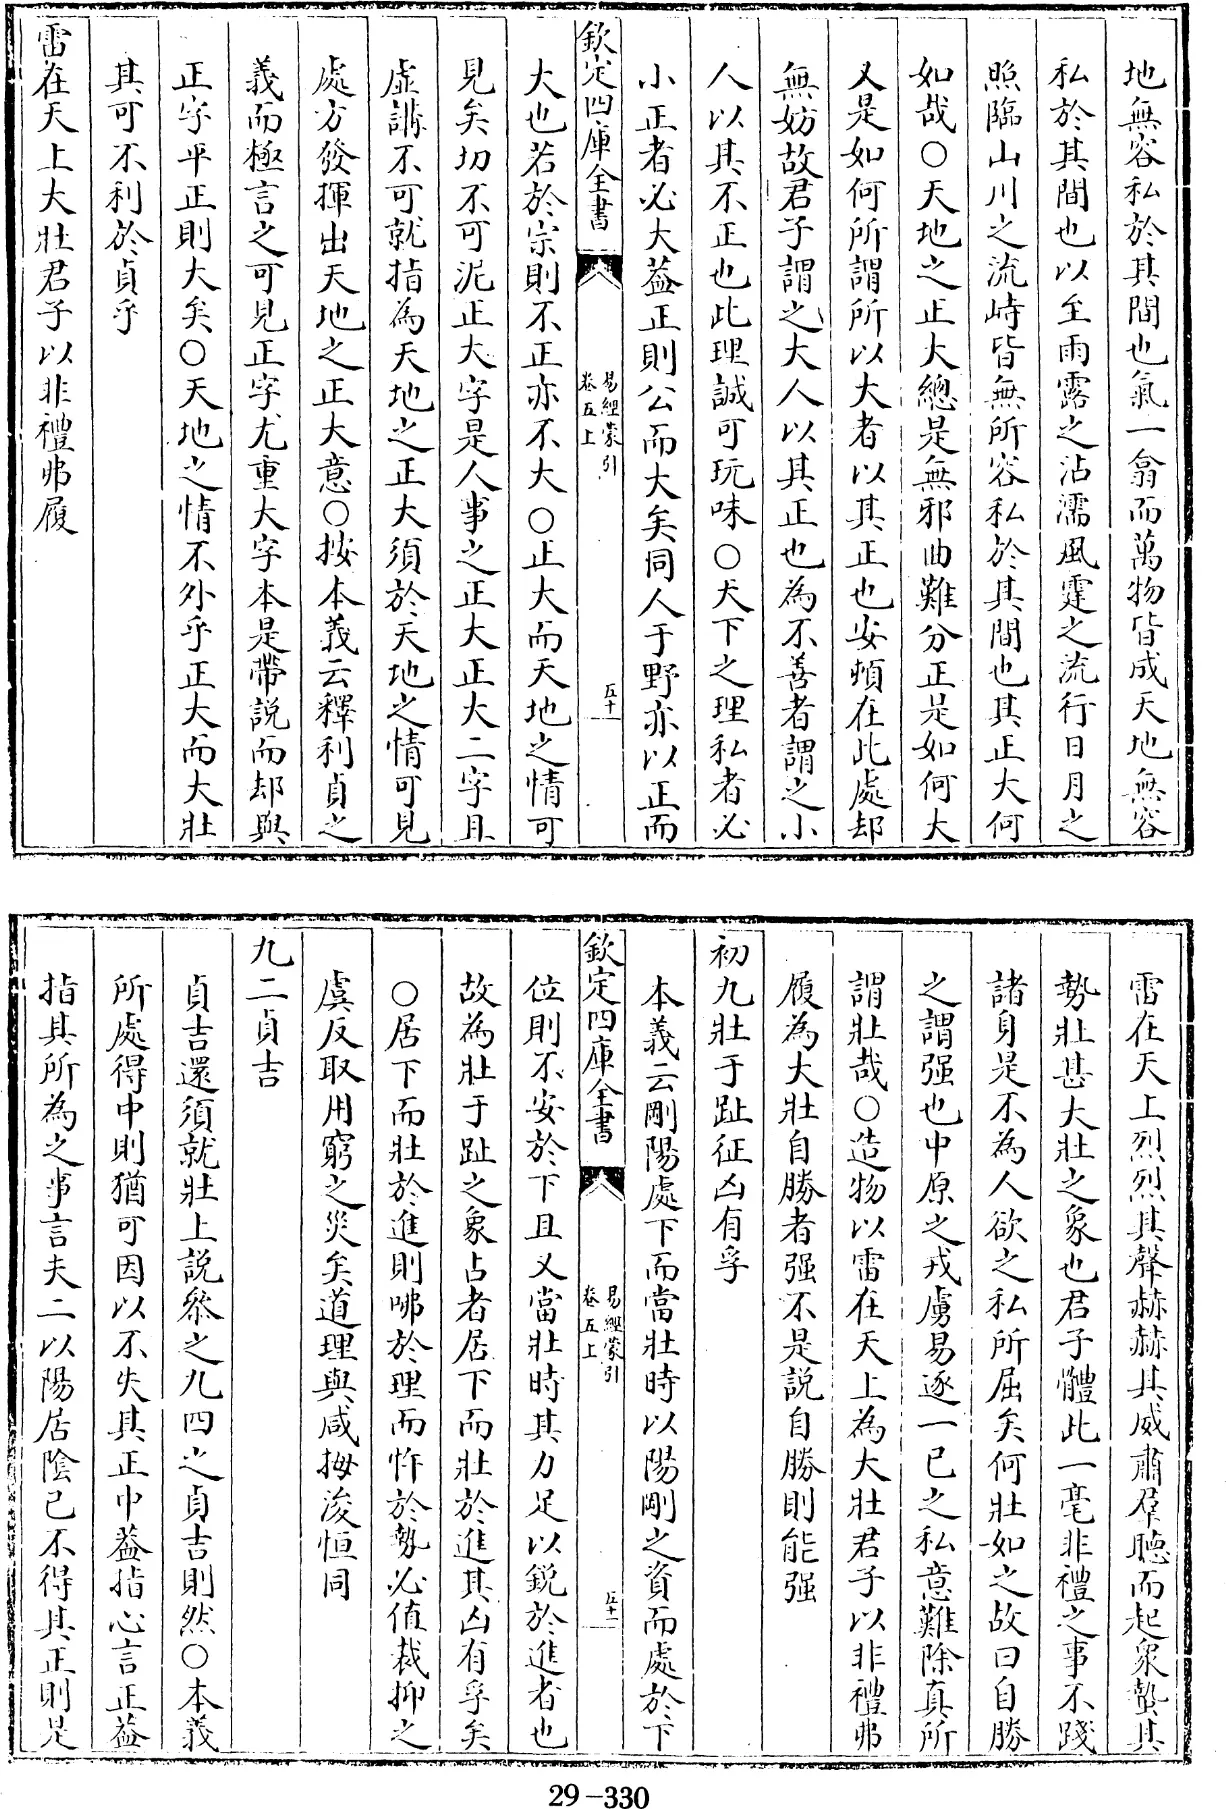 地無容私於其間也氣一翕而萬物皆成天地無容
私於其間也以至雨露之沾濡風霆之流行日月之
照臨山川之流峙皆無所容私於其間也其正大何
如哉○天地之正大總是無邪曲難分正是如何大
又是如何所謂所以大者以其正也安頓在此處却
無妨故君子謂之大人以其正也為不善者謂之小
人以其不正也此理誠可玩味○天下之理私者必
小正者必大蓋正則公而大矣同人于野亦以正而
欽定四庫全書
易經蒙引
卷五上
五十
大也若於宗則不正亦不大○正大而天地之情可
見矣切不可泥正大字是人事之正大正大二字且
虛講不可就指為天地之正大須於天地之情可見
處方發揮出天地之正大意○按本義云釋利貞之
義而極言之可見正字尤重大字本是帶說而却與
正字平正則大矣○天地之情不外乎正大而大壯
其可不利於貞乎
雷在天上大壯君子以非禮弗履
雷在天上烈烈其聲赫赫其威肅羣聽而起衆蟄其
勢壯甚大壯之象也君子體此一毫非禮之事不踐
諸身是不為人欲之私所屈矣何壯如之故曰自勝
之謂强也中原之戎虜易逐一己之私意難除真所
謂壯哉○造物以雷在天上為大壯君子以非禮弗
履為大壯自勝者强不是說自勝則能强
初九壯于趾征凶有孚
本義云剛陽處下而當壯時以陽剛之資而處於下
欽定四庫全書
易經蒙引
卷五上
五十一
位則不安於下且又當壯時其力足以銳於進者也
故為壯于趾之象占者居下而壯於進其凶有孚矣
○居下而壯於進則咈於理而忤於勢必值裁抑之
虞反取用窮之災矣道理與咸拇浚恒同
九二貞吉
貞吉還須就壯上說叅之九四之貞吉則然○本義
所處得中則猶可因以不失其正中蓋指心言正蓋
指其所為之事言夫二以陽居陰已不得其正則是
29-330